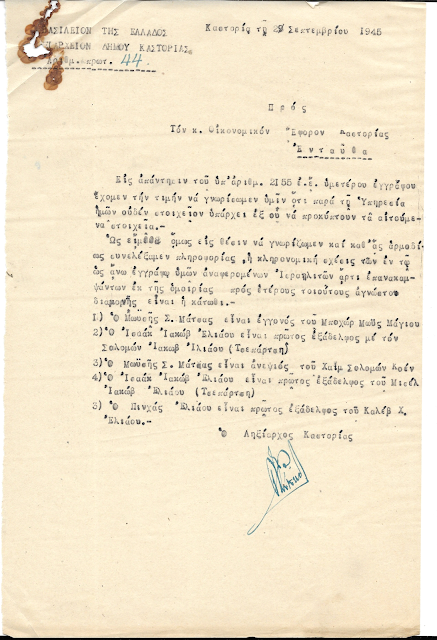 ΒΑΣΙΛΕΙΟΝ ΤΗΣ ΕΛΛΑΔΟΣ
ΛΗΞΙΑΡΧΕΙΟΝ ΔΗΜΟΥ ΚΑΣΤΟΡΙΑΣ
Ἀριθμ.πρωτ. 44
Καστορίᾳ τῇ Σεπτεμβρίου 1945
Πρός
Τόν κ. Οἰκονομικόν Ἔφορον Καστορίας
Ἐνταῦθα
Εἰς ἀπάντησιν τοῦ ὑπ'ἀριθμ. 2155 ἐ.ἔ. ὑμετέρου ἐγγράφου
ἔχομεν τήν τιμήν νά γνωρίζωμεν ὑμῖν ὅτι παρά τῇ Ὑπηρεσίᾳ
ἡμῶν οὐδέν στοιχεῖον ὑπάρχει ἐξ οὗ νά προκύπτουν τά αἰτούμε-
να στοιχεῖα.-
Ὡς εἴμεθα ὅμως εἰς θέσιν νά γνωρίζωμεν καί καθ'ἅς ἁρμοδί-
ως συνελέξαμεν πληροφορίας ,ἡ κληρονομική σχέσις τῶν ἐν τῷ
ὡς ἄνω ἐγγράφῳ ὑμῶν ἀναφερομένων Ἰσραηλιτῶν ἄρτι ἐπανακαμ-
ψάντων ἐκ τῆς ὁμηρίας πρός ἑτέρους τοιούτους ἀγνώστου
διαμονῆς εἶναι ἡ κάτωθι.-
1) Ὁ Μωϋσῆς Σ. Μάτσας εἶναι ἔγγονός τοῦ Μποχώρ Μωϋς Μάγιου
2) Ὁ Ἰσαάκ Ἰακώβ Ἐλιάου εἶναι πρῶτος ἐξάδελφος μέ τόν
Σολομών Ἰακώβ Ἠλιάου (Τσεπάρτση)
3) Ὁ Μωϋσῆς Σ. Μάτσας εἶναι ἀνεψιός τοῦ Χαΐμ Σολομών Κοέν
4) Ὁ Ἰσαάκ Ἰακώβ Ἐλιάου εἶναι πρῶτος ἐξάδελφος τοῦ
Ἰακώβ Ἐλιάου (Τσεπάρτση)
3) Ὁ Πινχάς Ἐλιάου εἶναι πρῶτος ἐξάδελφος τοῦ Καλέβ Χ.
Ἐλιάου.-
Ὁ Ληξίαρχος Καστορίας